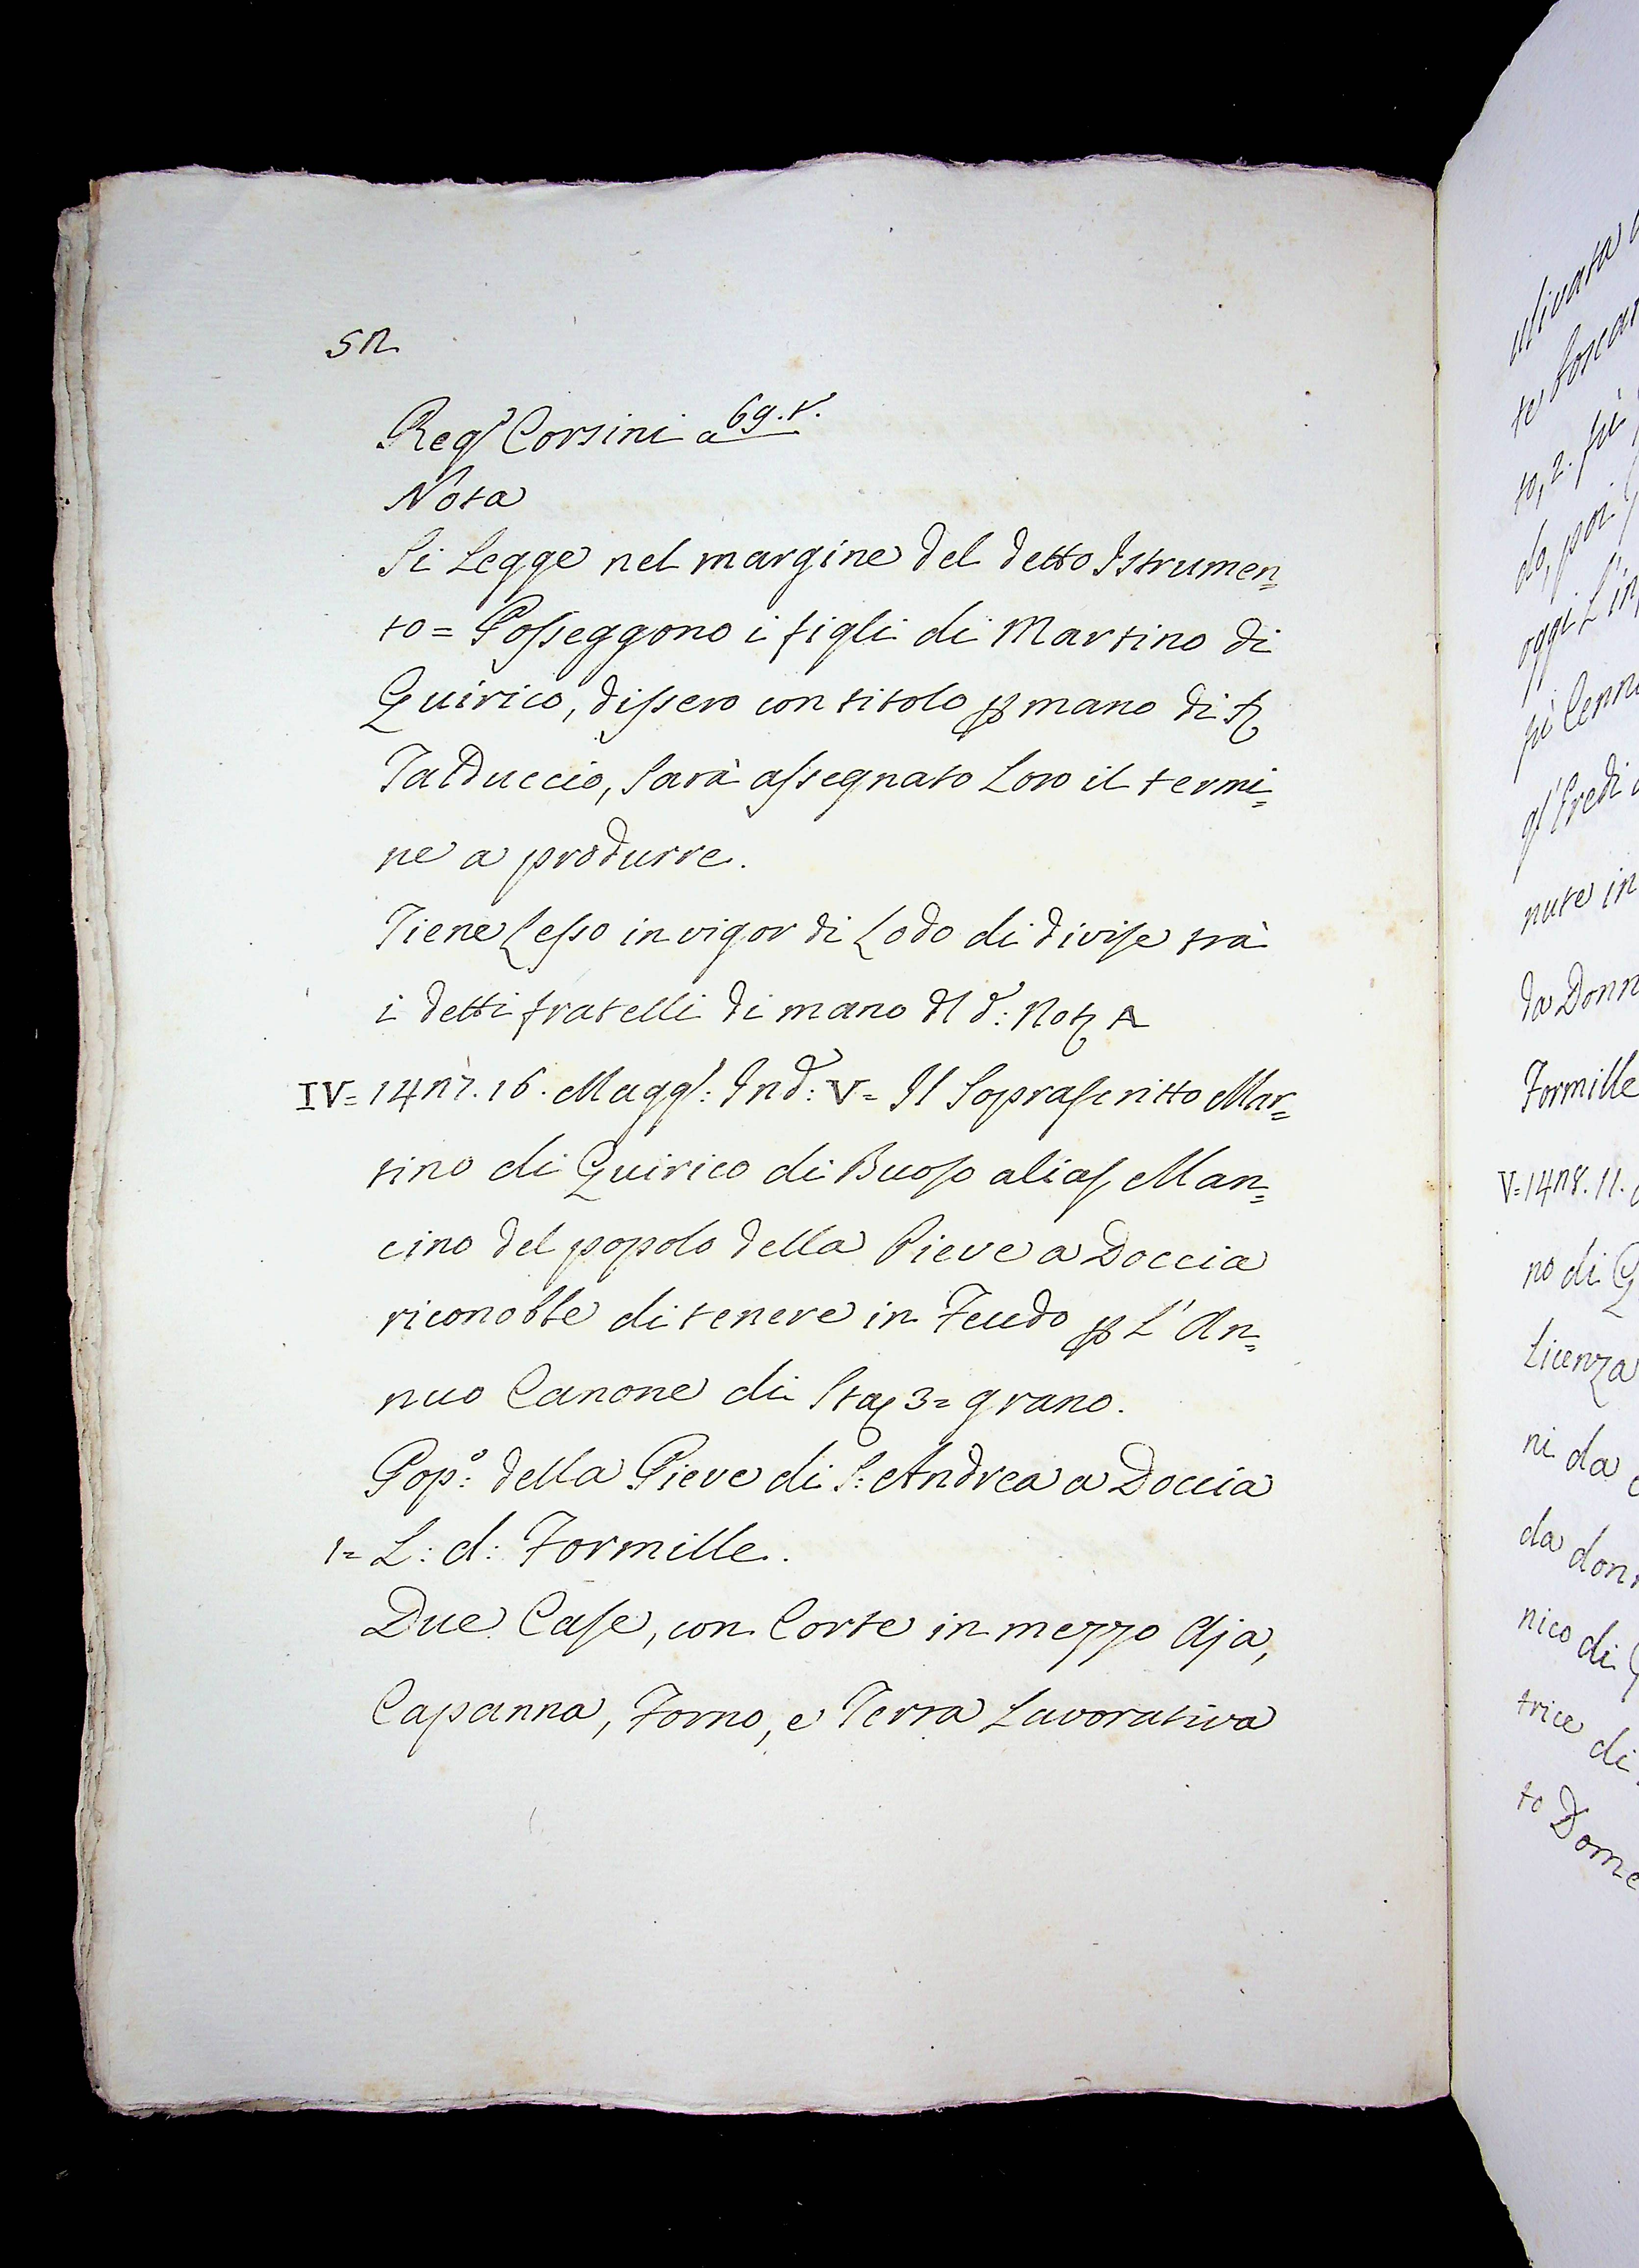 52
Reg.º Corsini a 69.t.
Nota
Si Legge nel margine del detto Istrumen=
to = Posseggono i figli di Martino di
Quirico, dissero con titolo ꝑ mano di
Talduccio, sarà assegnato Loro il termi=
ne a produrre.
Tiene Lesso in vigor di Lodo di divise trà
i detti fratelli di mano dl d.º: Not
IV= 1427. 16. Magg.: Ind.: V= Il Soprascritto Mar=
tino di Quirico di Buoso alias Man=
cino del popolo della Pieve a Doccia
riconobbe di tenere in Feudo ꝑ L'An=
nuo Canone di Sta 3= grano.
Pop.º: della Pieve di S: Andrea a Doccia
1= L: d: Formille.
Due Case, con Corte in mezzo Aja,
Capanna, Forno, e Terra Lavorativa
ulivata
te boscar
to, 2. fù
do, poi
oggi L'in
più Cenni
gl'Eredi
nute in
da Donn
Formille
V=1428. 11.
no di Q
Licenza
ni da
da don
nico di
trice di
to Dome